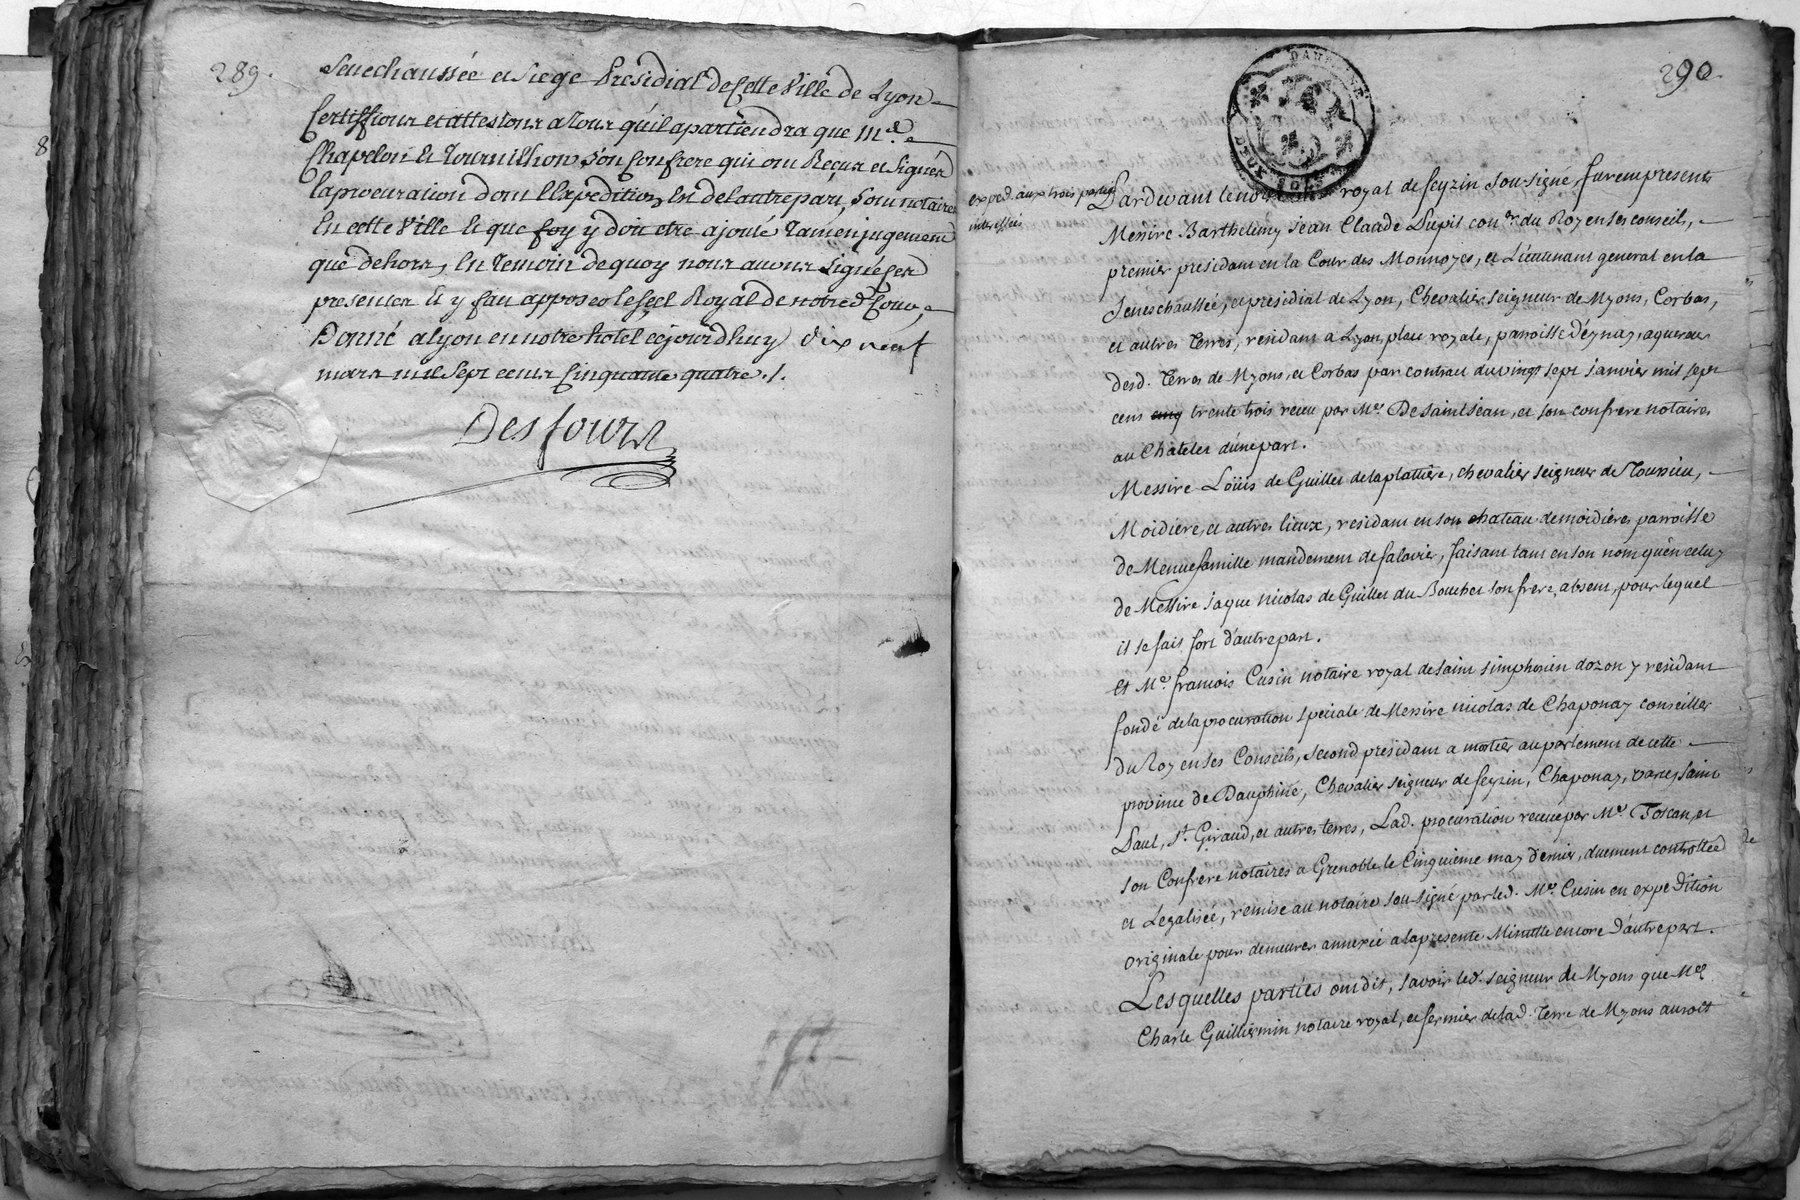 289.
Senechaussée et Siege Presidial de Cette Ville de Lyon
Certiffions et attestons a tous qu'il apartiendra que Me.
Chapelon et Tournilhon, son Confrere qui ont Reçus et Signés
la procuration dont l'Expedition Est de l'autre part, sont notaires
En cette Ville et que foy y doit etre ajouté tant en jugement
que dehors, En temoin de quoy nous avons signé ces
presentes et y fait apposer le scel Royal de notre de. Cour,
Donné a Lyon en notre hotel cejourd'huy dix neuf
mars mil sept cents Cinquante quatre ./.
Desfours
290.
DAUPHINÉ
DEUX SOLS
exped. aux trois parties
interessées
Pardevant le no royal de feyzin sousigné, furent presents
Messire Barthelemy Jean Claude Lupis conser. du Roy en ses conseils,
premier presidant en la Cour des Monnoyes, et Lieutenant general en la
Seneschaussée, et presidial de Lyon, Chevalier seigneur de Myons, Corbas,
et autres terres, residant a Lyon place royale, parroisse d'éynay, aquereur
desd. terres de Myons, et Corbas par contrau du vingt sept janvier mil sept
cens cinq trente trois receu par Me. De saint jean, et son confrere notaires
au Chatelet d'une part.
Messire Loüis de Guillet de la plattiere, chevalier seigneur de Toussieu,
Moidiere, et autres lieux, residant en son chateau de moidieres parroisse
de Menuefamille mandement de falavier, faisant tant en son nom qu'en celuy
de Messire jaque nicolas de Guillet du Bouchet son frere, absent, pour lequel
il se fait fort d'autre part.
Et Me. francois Cusin notaire royal de saint simphorien dozon y residant
fondé de la procuration speciale de Messire nicolas de Chaponay conseiller
du Roy en ses Conseils, second presidant a mortier au parlement de cette
province de Dauphiné, Chevalier seigneur de feyzin, Chaponay, varces, saint
Paul, St. Giraud, et autres terres, Lad. procuration receüe par Me. Toscan, et
son Confrere notaires a Grenoble le Cinquieme may dernier, duement controllée
et Legalisée, remise au notaire sousigné par led. Me. Cusin en expedition
originale pour demeurer annexée a la presente Minutte encore d'autre part.
Lesquelles parties ont dit, savoir led. seigneur de Myons que Me.
Charle Guillermin notaire royal, et fermier de lad. terre de Myons auroit